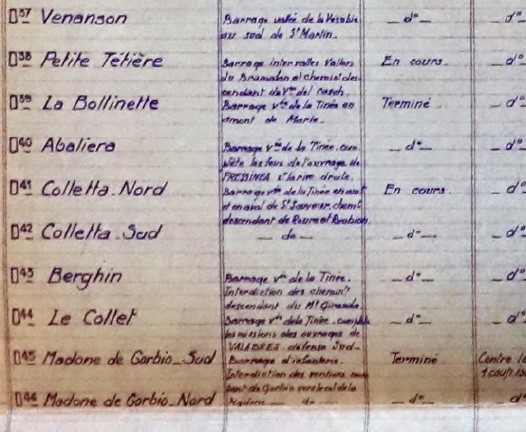 D37 Venanson Barrage vallée de la Vésubie — d° — d°
au sud de St Martin.
D38 Petite Tétière Barrage intervalles Vallon En cours. — d°
du Bramafan et chemin des-
cendant du Von del Casch.
D39 La Bollinette Barrage Vée de la Tinée en Terminé — d°
amont de Marie.
D40 Abaliera Barrage Vée de la Tinée, com — d° — d°
plète les feux de l'ouvrage de
FRESSINEA s/la rive droite.
D41 Colletta. Nord Barrage Vée de la Tinée en amt En cours. — d°
et en aval de St Sauveur, chemt
descendant de Roure et Roubion
D42 Colletta. Sud — do — — d° — — d°
D43 Berghin Barrage Vée de la Tinée. — d° — — d°
Interdiction des chemins
descendant du Mt
D44 Le Collet Barrage Vée de la Tinée. complète — d° — — d°
les missions des ouvrages de
VALABRES défense Sud-
D45 Madone de Gorbio_Sud Barrage d'infanterie. Terminé Contre le
Interdiction des sentiers 1 coup
dant de Gorbio vers le col de la
D46 Madone de Gorbio_Nord Madone — do — — d° — — d°